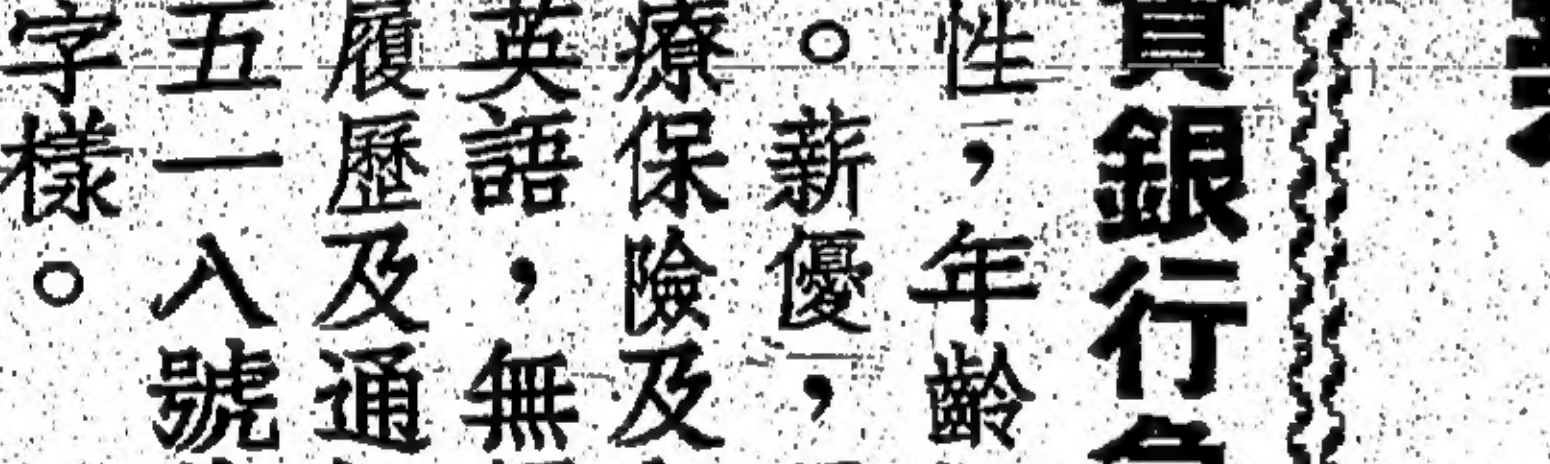 銀行
性，年齡
。薪優，
療保險及
英語，無
履歷及通
五一入號
字樣。